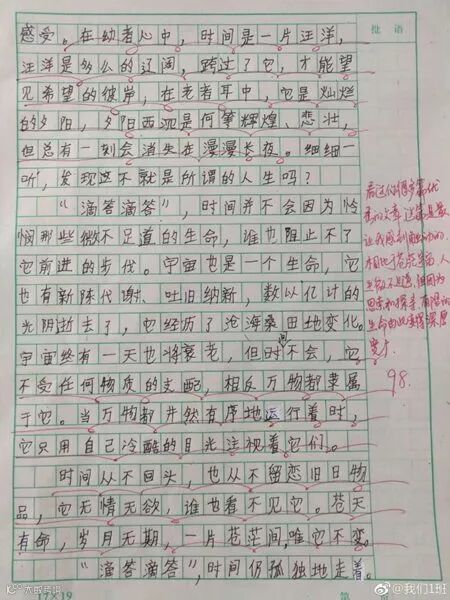 批 语
感受。在幼者心中，时间是一片汪洋，
汪洋是多么的辽阔，跨过了它，才能望
见希望的彼岸，在老者耳中，它是灿烂
的夕阳，夕阳西乖是何等辉煌、悲壮，
但总有一刻会消失在漫漫长夜。细细一
听，发现这不就是所谓的人生吗？
“滴答滴答”，时间并不会因为怜
悯那些微不足道的生命，谁也阻止不了
它前进的步伐。宇宙也是一个生命，它
也有新陈代谢、吐旧纳新，数以亿计的
光阴逝去了，它经历了沧海桑田地变化。
宇宙终有一天也将衰老，但时间不会，它
不受任何物质的支配，相反万物都隶属
于它。当万物都井然有序地运行着时，
它只用自己冷酷的目光注视着它们。
时间从不回头，也从不留恋旧日物
品，它无情无欲，谁也看不见它。苍天
有命，岁月无期，一片苍茫间，唯它不变。
“滴答滴答”，时间仍孤独地走着。
看过你很多篇优
秀的文章，这篇是最
让我感到触动的。
人
因为
思索和探寻，有限的
生命由此变得深厚
宽广
98.
17×19
第
@我们1班